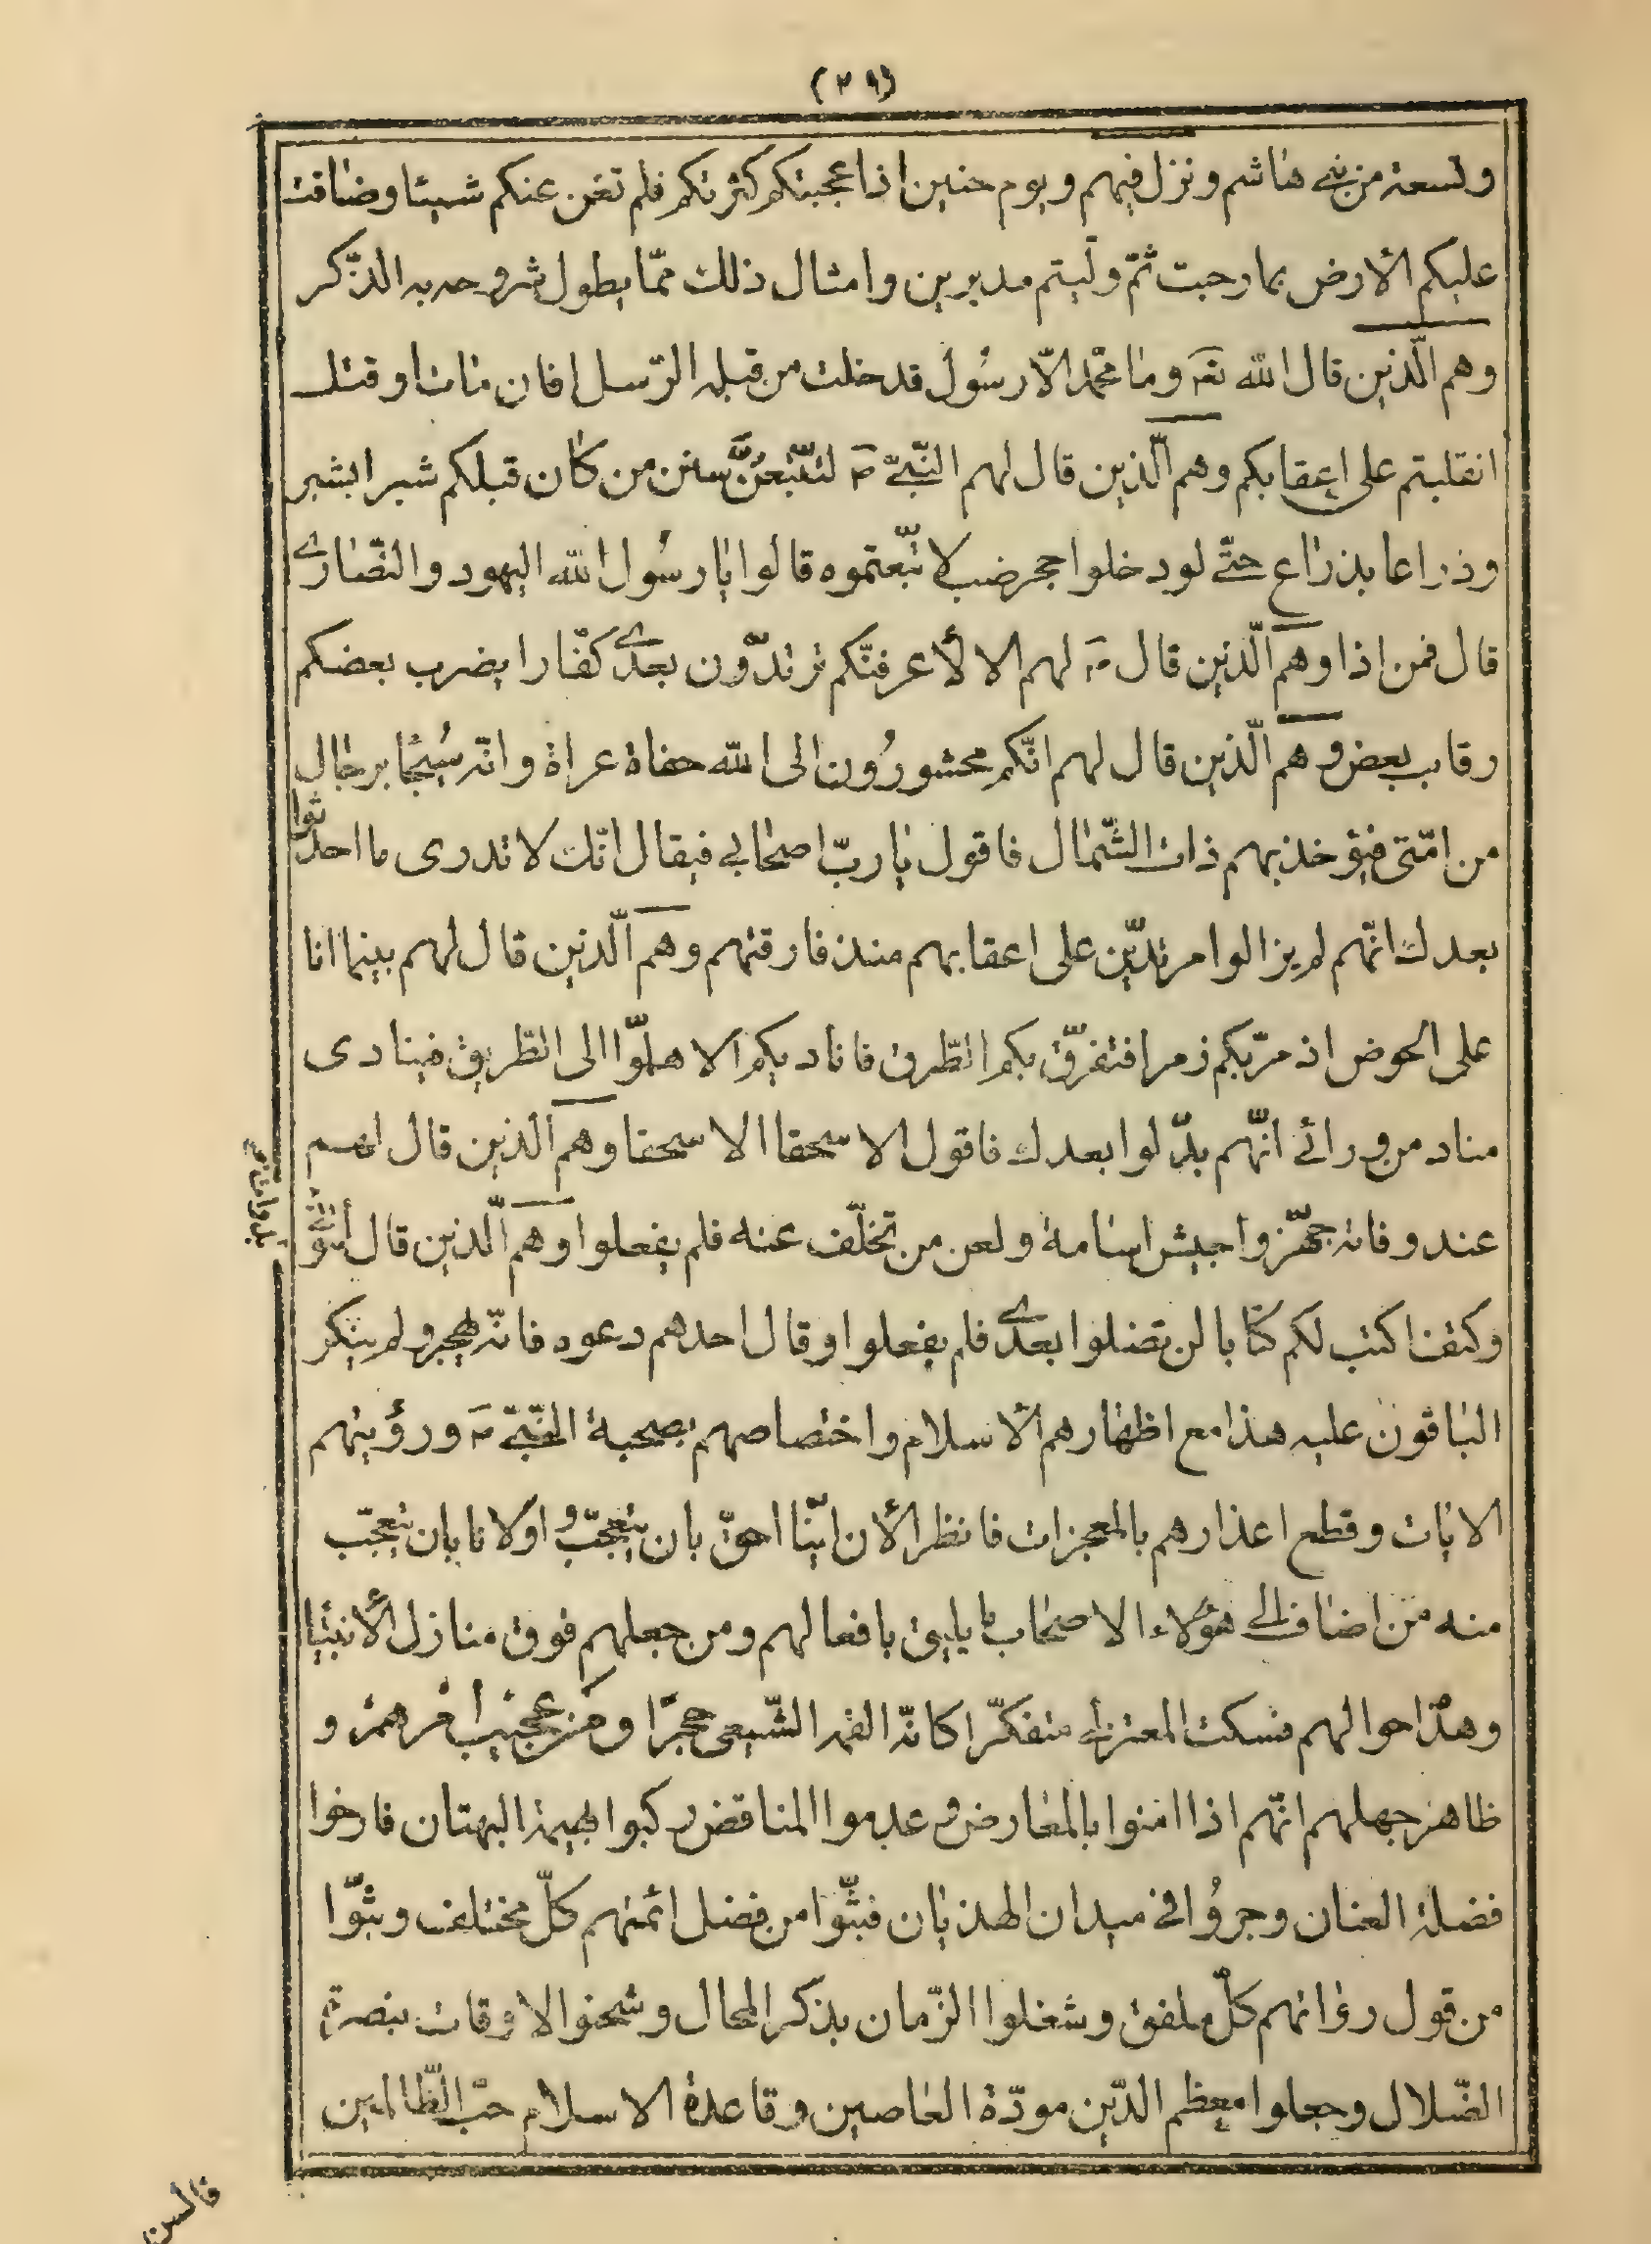 (٢٩)
وتسعة من بني هاشم ونزل فيهم ويوم حنين اذا عجبتكم كثرتكم فلم تغن عنكم شيئا وضاقت
عليكم الأرض بما رحبت ثمّ ولّيتم مدبرين وامثال ذلك ممّا يطول شرحه به الذّكر
وهم الّذين قال الله تعه وما محمّد الّا رسُول قد خلت من قبله الرّسل افان مات او قتل
انقلبتم على اعقابكم وهم الّذين قال لهم النّبيّ ص لتتّبعُنَّ سنن من كان قبلكم شبرا بشبر
وذراعا بذراع حتّى لو دخلوا جحر ضب لاتّبعتموه قالوا يا رسُول الله اليهود والنّصارى
قال فمن اذا وهم الّذين قال ص لهم الا لأعرفنّكم ترتدّون بعدى كفّارا يضرب بعضكم
رقاب بعض وهم الّذين قال لهم انّكم محشورُون الى الله حفاة عراة وانّه سُيجٰا برجال
من امّتى فيؤخذ بهم ذات الشّمال فاقول يا ربّ اصحابي فيقال انّك لا تدرى ما احدثوا
بعدك انّهم لم يزالوا مرتدّين على اعقابهم منذ فارقتهم وهم الّذين قال لهم بينما انا
على الحوض اذ مرّ بكم زمرا فتفرّق بكم الطّرق فاناديكم الا هلمّوا الى الطّريق فينادى
مناد من ورائى انّهم بدّلوا بعدك فاقول الا سحقا الا سحقا وهم الذين قال لهم
عند وفاته جهّزوا جيش اسامة ولعن من تخلّف عنه فلم يفعلوا وهم الّذين قال أيتوني
بدواة
وكتف اكتب لكم كتابا لن تضلوا بعدى فلم يفعلوا وقال احدهم دعوه فانّه ليهجر ولم ينكر
الباقون عليه هذا مع اظهارهم الأسلام واختصاصهم بصحبة النّبيّ ص ورؤيتهم
الايات وقطع اعذارهم بالمعجزات فانظر الأن ايّنا احقّ بان يتعجّب واولانا بان يتعجّب
منه من اضاف الى هؤلاء الاصحاب ما يليق بافعالهم ومن جعلهم فوق منازل الأنبيا
وهذا حوالهم فسكت المعتزلى متفكّرا كانّه القم الشّيعى حجرًا ومن عجيب أمرهم و
ظاهر جهلهم انّهم اذا امنوا بالمعارض وعدموا المناقض ركبوا بهيمة البهتان فارخوا
فضلة العنان وجروُا فى ميدان الهذيان فبثّوا من فضل ائمتهم كلّ مختلف وبثوّا
من قول رواتهم كلّ ملفق وشغلوا الزّمان بذكر المحال وشحنوا الاوقات بنصرة
الضّلال وجعلوا معظم الدّين مودّة العاصين وقاعدة الاسلام حبّ الظّالمين